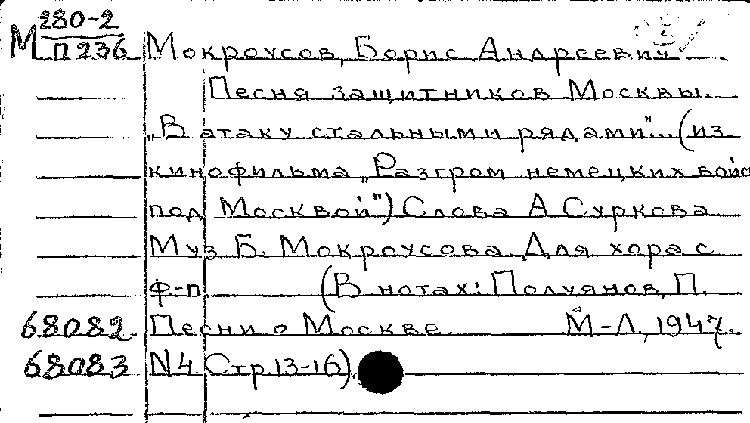 280-2
М П 236 Мокроусов, Борис Андреевич
Песня защитников Москвы.
„В атаку стальными рядами"... (из
кинофильма „Разгром немецких войс
под Москвой") Слова А Суркова
Муз Б. Мокроусова Для хора с
ф-п (В нотах: Полуянов, П.
68082 Песни о Москве М-Л, 1947.
68083 N4 Стр 13-16)